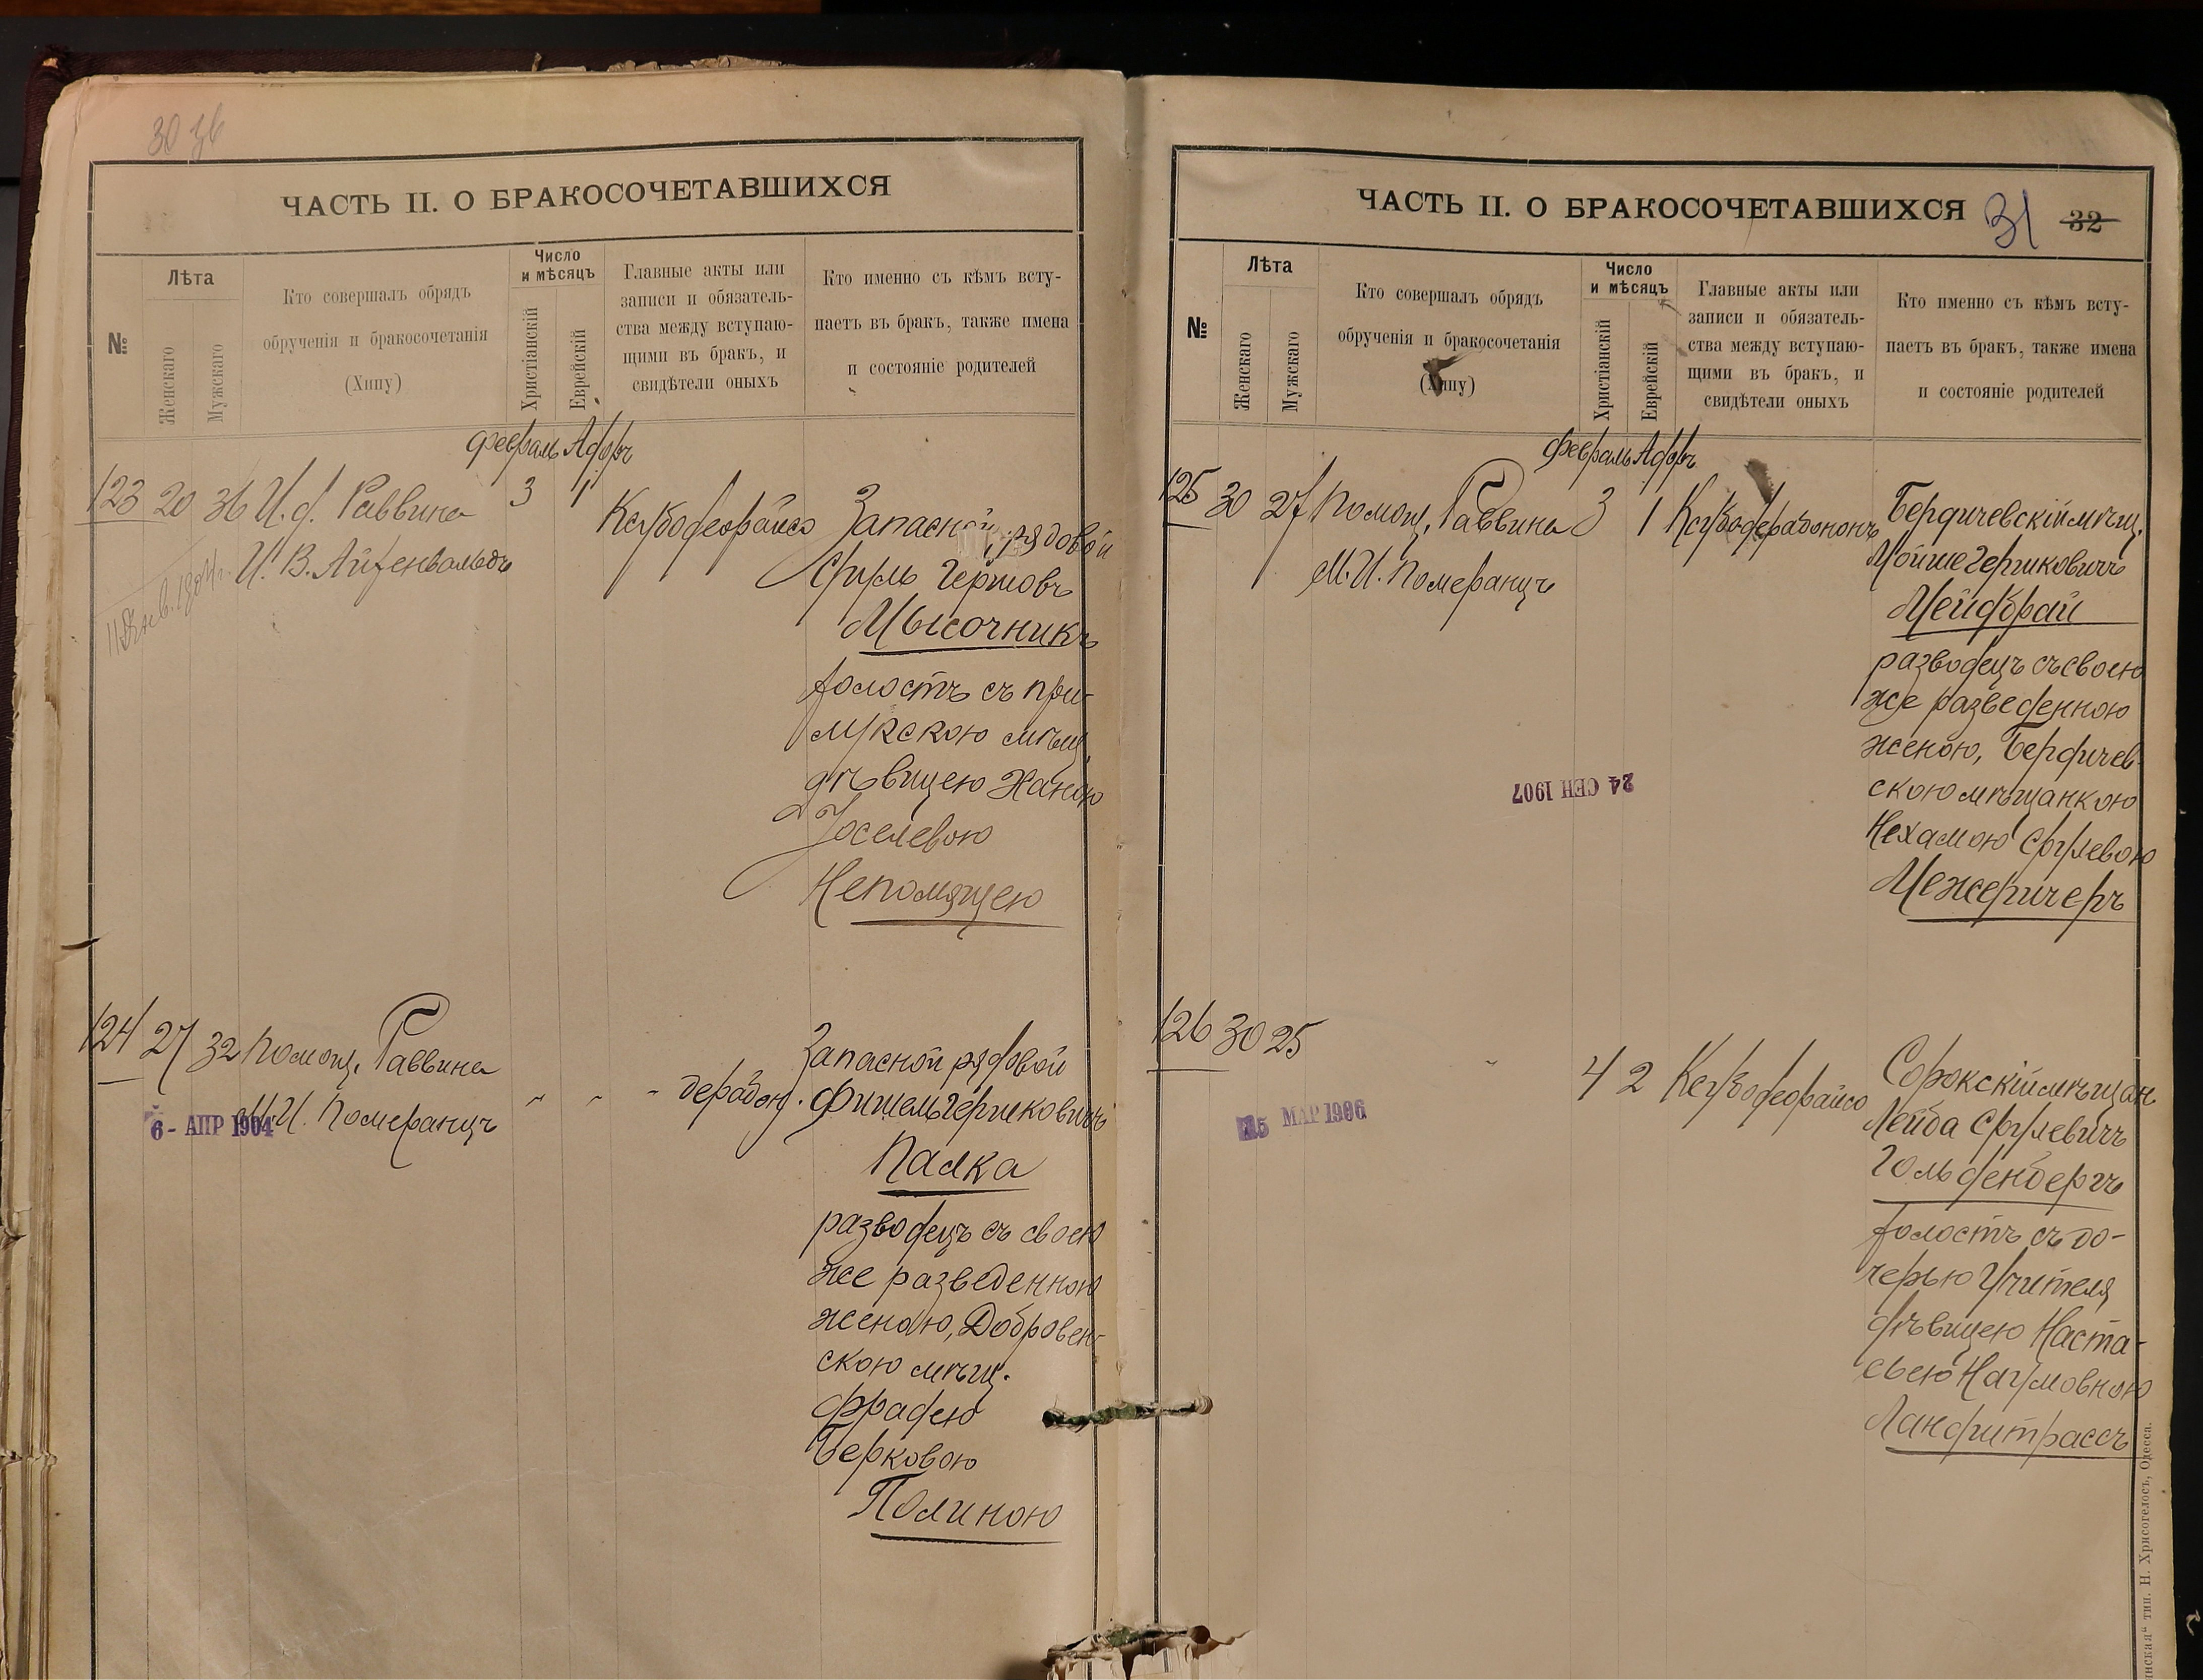 30 об
ЧАСТЬ II. О БРАКОСОЧЕТАВШИХСЯ
№
Лѣта
Женскаго
Мужскаго
Кто совершалъ обрядъ
обрученія и бракосочетанія
(Хипу)
Число
и мѣсяцъ
Христіанскій
Еврейскій
Главные акты или
записи и обязатель-
ства между вступаю-
щими въ бракъ, и
свидѣтели оныхъ
Кто именно съ кѣмъ всту-
паетъ въ бракъ, также имена
и состояніе родителей
Февраль Адоръ
123 20 36 И. д. Раввина 3 1
И. В. Айзенвальдъ
Запасной рядовой
Сруль Гершовъ
Мысочникъ
холостъ съ при-
лукскою мѣщ.
дѣвицею Ханою
Іоселевою
Непомящею
124 27 32 Помощ. Раввина
М. И. Померанцъ
6- АПР 1904
Запасной рядовой
Фишель Гершковичъ
Палка
разводецъ съ своею
же разведенною
женою, Добровен-
скою мѣщ.
Фрадею
Берковою
Полиною
ЧАСТЬ II. О БРАКОСОЧЕТАВШИХСЯ
31 32
№
Лѣта
Женскаго
Мужскаго
Кто совершалъ обрядъ
обрученія и бракосочетанія
(Хипу)
Число
и мѣсяцъ
Христіанскій
Еврейскій
Главные акты или
записи и обязатель-
ства между вступаю-
щими въ бракъ, и
свидѣтели оныхъ
Кто именно съ кѣмъ всту-
паетъ въ бракъ, также имена
и состояніе родителей
Февраль Адоръ
125 30 27 Помощ. Раввина 3 1
М. И. Померанцъ
Бердичевскій мѣщ.
Мойше Гершковичъ
Мейфрай
разводецъ съ своею
же разведенною
женою, Бердичев-
скою мѣщанкою
Нехамою Срулевою
Межеричеръ
24 СЕН 1907
126 30 25 4 2
15 МАР 1906
Сорокскій мѣщан.
Лейба Срулевичъ
Гольденбергъ
холостъ съ до-
черью Учителя
дѣвицею Наста-
сьею Наумовною
Ландштрассъ
тип. Н. Хрисогелосъ, Одесса.